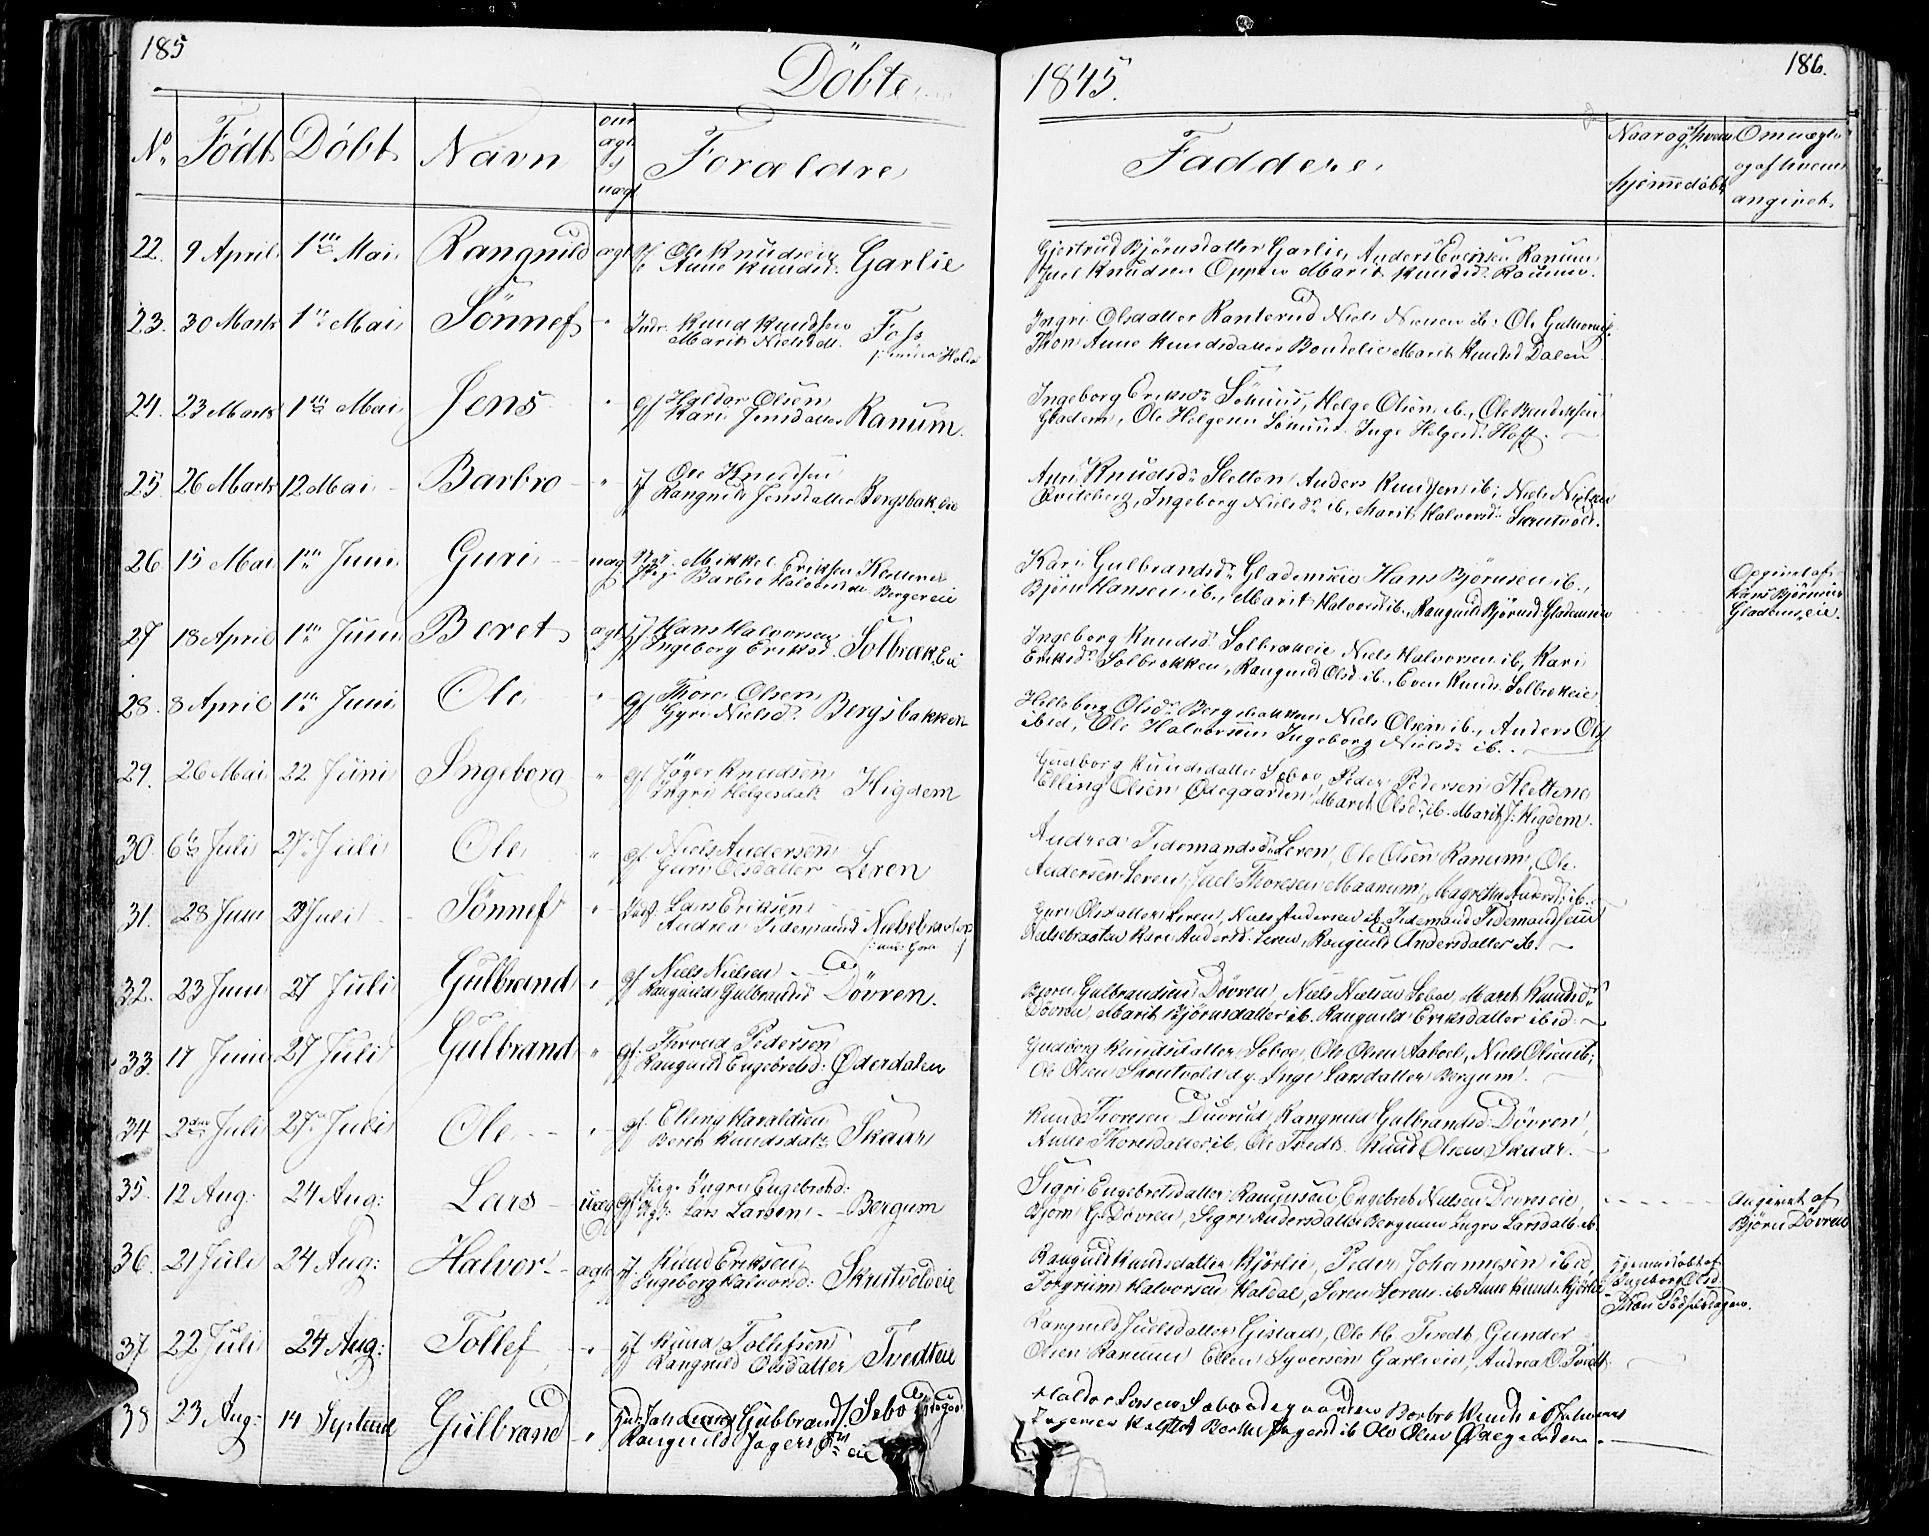 185
186.
Döbte
1845.
No Födt Döbt Navn om ægt. el uægt Forældre
Faddere. Naar og af hvem hjemmedöbt Om uægte og af hvem angivet.
22. 9 April 1ste Mai Rangnild ægt Gf Ole Knudsen
Anne Knudsd. Garlie
Gjertrud Björnsdatter Garlie, Anders Evensen Ranum
Juel Knudsen Oppen Marit Knudsd. Ranum.
23. 30 Marts 1ste Mai Sönnef " Indr. Knud Knudsen Foss
Marit Nielsdtt.
Ingri Olsdatter Ranterud Niels Nielsen ib. Ole Gulbrands.
Thon Anne Knudsdatter Boudelie Marit Knudsd Dalen
24. 23 Marts 1ste Mai Jens " Gf Haldor Olsen
Kari Jensdatter Ranum.
Ingeborg Eriksdr Sömmi, Helge Olsen ib., Ole Bendiksen
Gladem, Ole Helgesen Sömmi. Inge Helgesd. Hoff.
25 26 Marts 12 Mai Barbro " If Ole Knudsen
Rangnild Jensdatter Bergsbak.eie
Anne Knudsdr Sletten Anders Knudsen ib; Niels Nielsen
Qviteberg, Ingeborg Nielsdr ib, Marit Halvorsdr Skrutvold.
26 15 Mai 1ste Juni Guri uægt Ugk. Mikkel Eriksen
Pige Barbro Halvorsdtr Bergereie
Kari Gulbrandsdr Glademseie Hans Björnsen ib.,
Björn Hansen ib., Marit Halvorsd ib., Rangnild Björnsd. Glademseie
Opgivet af
Hans Björnsen
Glademseie.
27 18 April 1ste Juni Beret ægt If Hans Halvorsen
Ingeborg Eriksd. Solbrak.Eie
Ingeborg Knudsd. Solbrakeie Niels Halvorsen ib, Kari
Eriksdr Solbrekken, Rangnild Olsd ib., Even Knuds. Solbrekeie
28. 8 April 1ste Juni Ole " Gf Thore Olsen
Gyri Nielsdr. Bergsbakken
Helleborg Olsdr Bergsbakken Niels Olsen ib., Anders Ols.
ibid, Ole Halvorsen Ingeborg Nielsdr ib.
29. 26 Mai 22 Juni Ingeborg " Gf Jöger Knudsen
Ingri Helgesdatr Higdem
Gudborg Knudsdatter Seboe, Peder Pedersen Klettene
Elling Olsen Ödegaarden, Marit Olsdr. ib. Marit J. Higdem.
30 6te Juli 27. Juli Ole " Gf. Niels Andersen
Guri Olsdatter Leren
Andrea Tidemandsdr Leren, Ole Olsen Ranum, Ole
Andersen Leren, Juel Thoresen Maanum, Magrethe Andersd. ib.
31. 28 Juni 27 Juli Sönnef " Lars Eriksen
Andrea Tidemansd Nielsebraaten
Guri Olsdatter Leren, Niels Andersen ib. Tidemand Tidemandsen
Nalsebraaten Kari Andersd. Leren, Rangnild Andersdatter ib.
32. 23 Juni 27 Juli Gulbrand " Gf Niels Nielsen
Rangnild Gulbrandsd Dövren.
Björn Gulbrandsen Dövren, Niels Nielsen Seboe, Maret Knudsdr
Dövren, Marit Björnsdatter ib. Rangnild Eriksdatter ibid.
33 17 Juni 27 Juli Gulbrand " Gf: Throud Pedersen
Rangnild Engebretsd: Öderdalen
Gudborg Knudsdatter Seboe, Ole Olsen Aaboel, Niels Olsen ib;
Ole Olsen Skrutvold d.y. Inge Larsdatter Bergum.
34 2den Juli 27 Juli Ole " Gf. Elling Haraldsen
Beret Knudsdatr Skaar
Knud Thoresen Duvrud, Rangnild Gulbrandsd. Dövren,
Anne Thoresdatter ib, Ole Tvedt. Knud Olsen Skaar.
35. 12 Aug: 24 Aug: Lars uæg Pige Ingri Engebretsd:
Lars Larsen Bergum
Sigri Engebretsdatter Ramsrud, Engebret Nielsen Dövreseie
Björn G. Dövren, Sigri Andersdatter Bergum Ingri Larsdatr ib.
Angivet af
Björn Dövren
36. 21 Juli 24 Aug: Halvor ægt If. Knud Eriksen
Ingeborg Halvorsd: Skrutvoldeie
Rangnild Knudsdatter Björlie, Peder Johannesen ibid,
Torgrim Halvorsen Haldal, Sören Sörens. ib Anne Knuds. Björlie
Hjemmedöbt af
Ingeborg Olsd.
37 22 Juli 24 Aug: Tollef " If Knud Tollefsen
Rangnild Olsdatter Tvedteie
Rangnild Juelsdatter Gistad, Ole H. Tvedt, Gunder
Olsen Ranum Ellen Syversen Garlieie, Andrea O. Tvedt
38 23 Aug: 14 Septemb Gulbrand " Johannes Gulbrands. Sebo
Rangnild Jagersdtr eie
Haldor Larsen Seboødegaarden Barbro Knudsd
Berthe Jagersd ib Ole Olsen Ödegaarden.